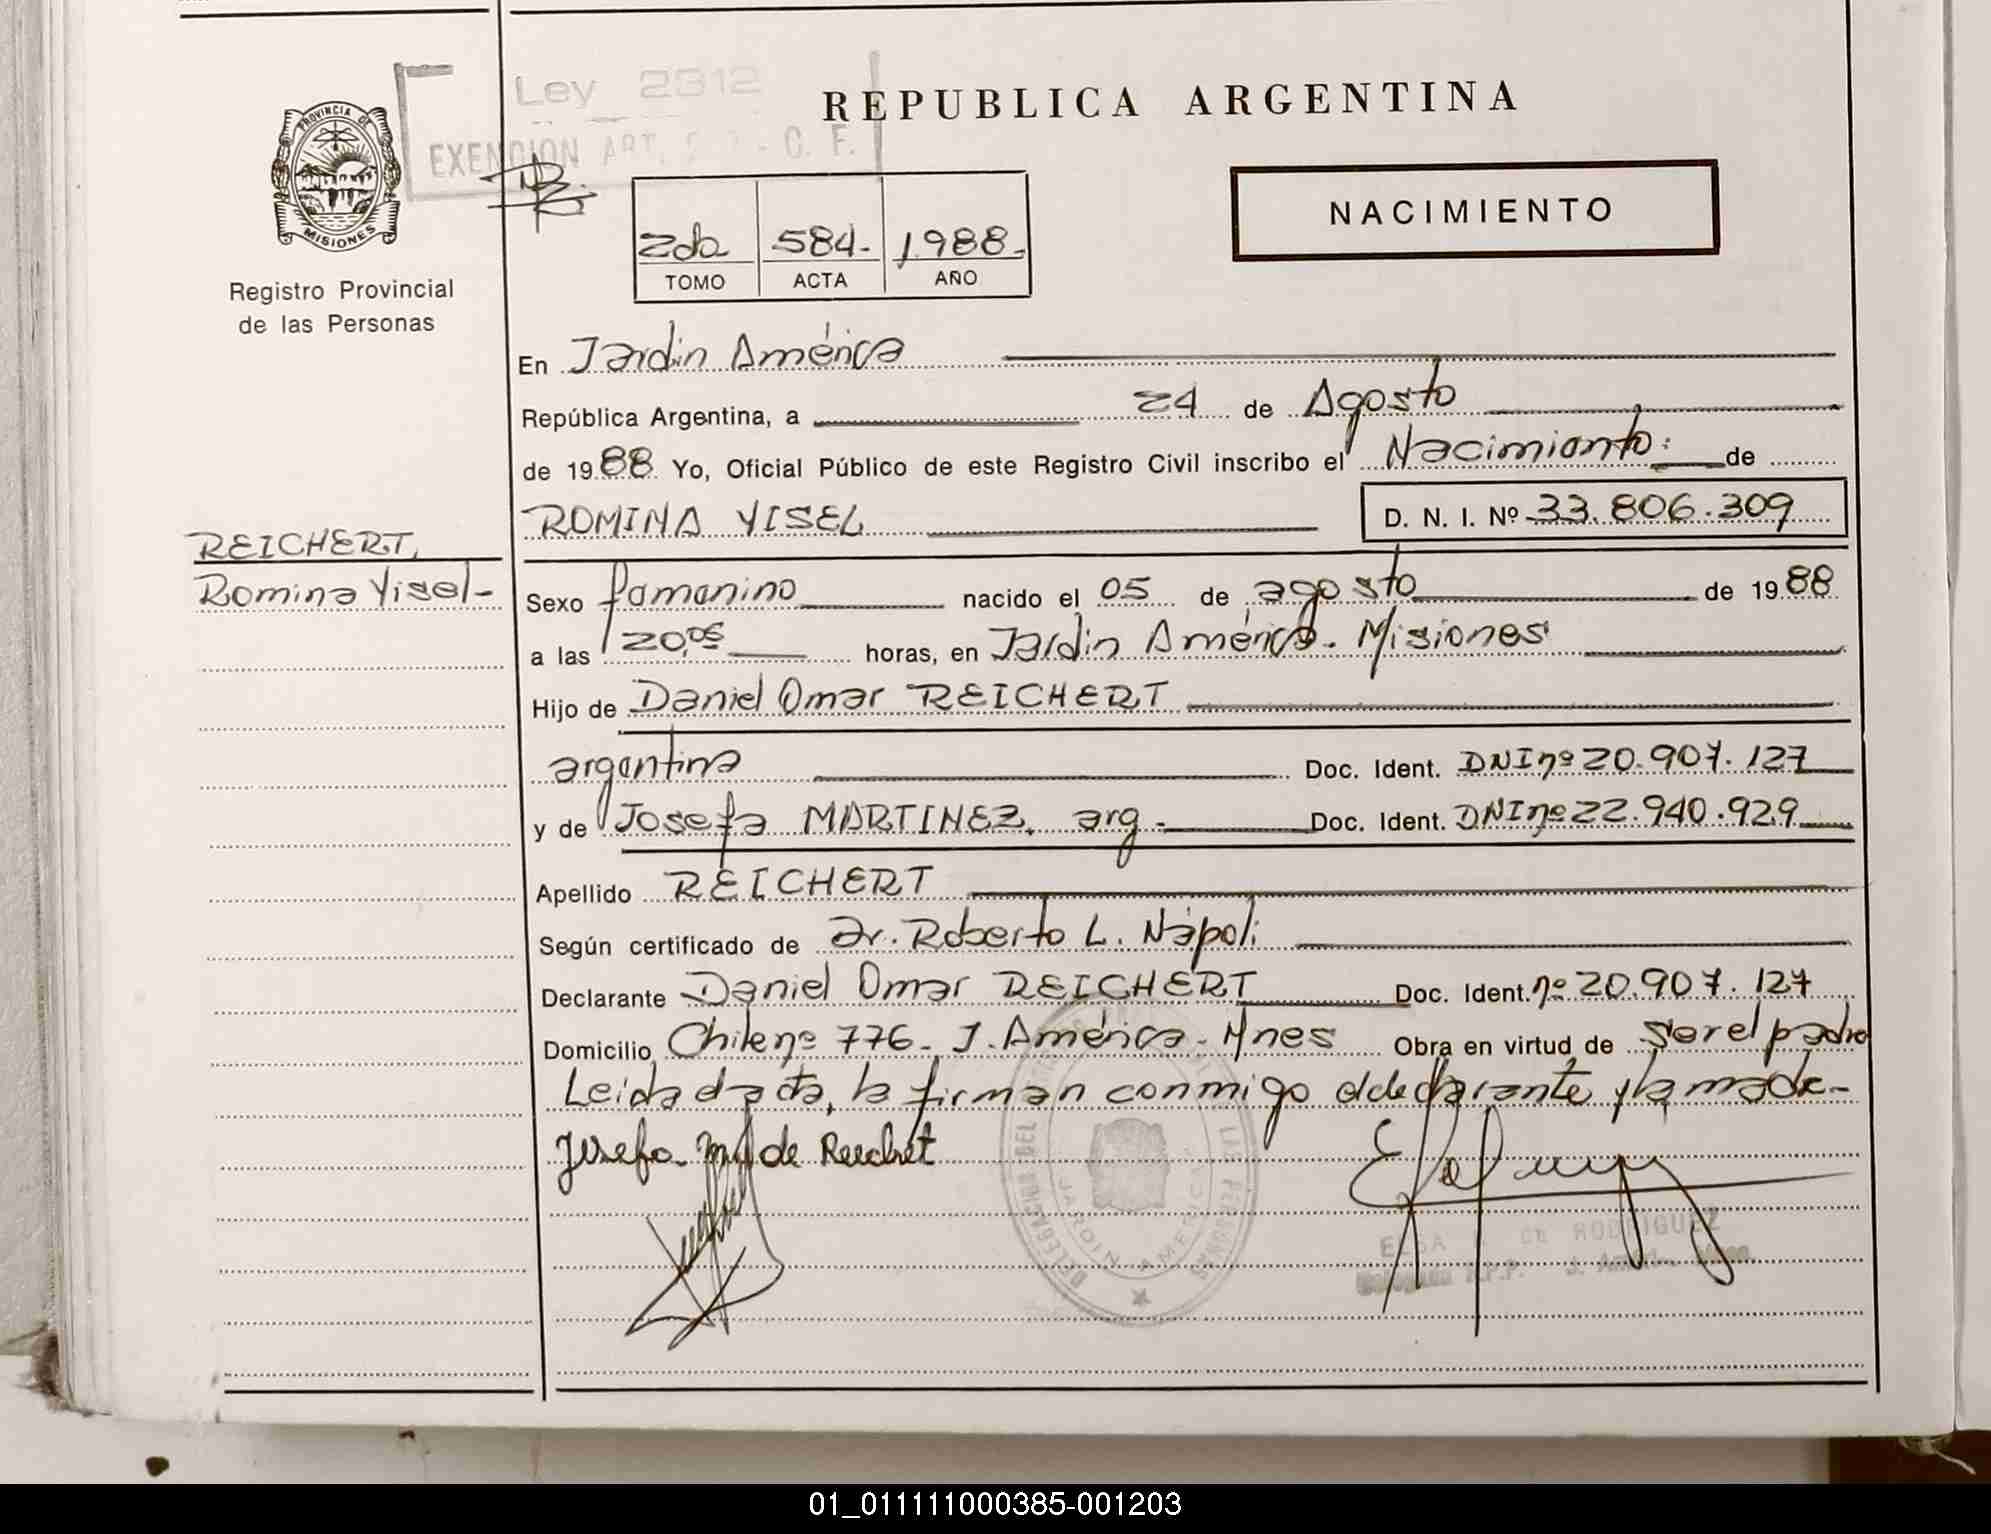 Ley 2312
EXENCION ART. C. F.
PROVINCIA DE
MISIONES
Registro Provincial
de las Personas
REPUBLICA ARGENTINA
NACIMIENTO
2da 584- 1.988-
TOMO ACTA AÑO
En Jardin América
República Argentina, a 24 de Agosto
de 1988 Yo, Oficial Público de este Registro Civil inscribo el Nacimiento: de
ROMINA YISEL D. N. I. Nº 33.806.309
REICHERT,
Romina Yisel-
Sexo femenino nacido el 05 de agosto de 1988
a las 20,05 horas, en Jardin América. Misiones
Hijo de Daniel Omar REICHERT
argentina Doc. Ident. DNI nº 20.907.127
y de Josefa MARTINEZ, arg. Doc. Ident. DNI nº 22.940.929
Apellido REICHERT
Según certificado de Dr. Roberto L. Nápoli
Declarante Daniel Omar REICHERT Doc. Ident. nº 20.907.127
Domicilio Chile nº 776- J. América- Mnes Obra en virtud de ser el padre
Leida el acta, la firman conmigo el declarante y la madre-
Josefa M. de Reichert
DELEGACION DEL LAS PERSONAS
JARDIN AMERICA
ELSA DE RODRIGUEZ
J. Amér.
01_011111000385-001203